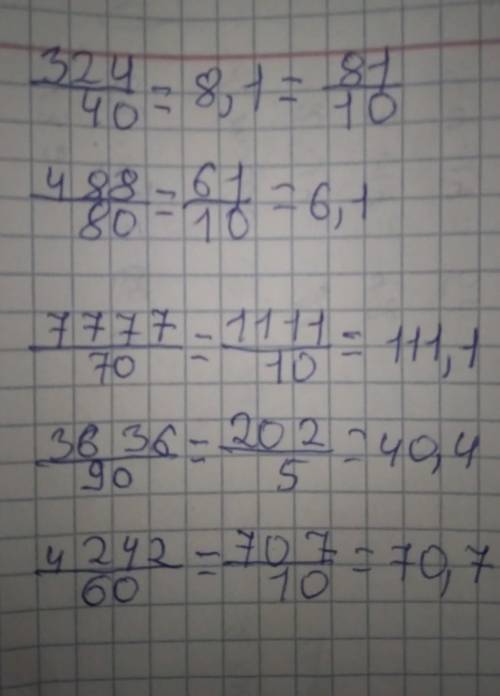 324/40 = 8,1 = 81/10
488/80 = 61/10 = 6,1
7777/70 = 1111/10 = 111,1
3636/90 = 202/5 = 40,4
4242/60 = 707/10 = 70,7